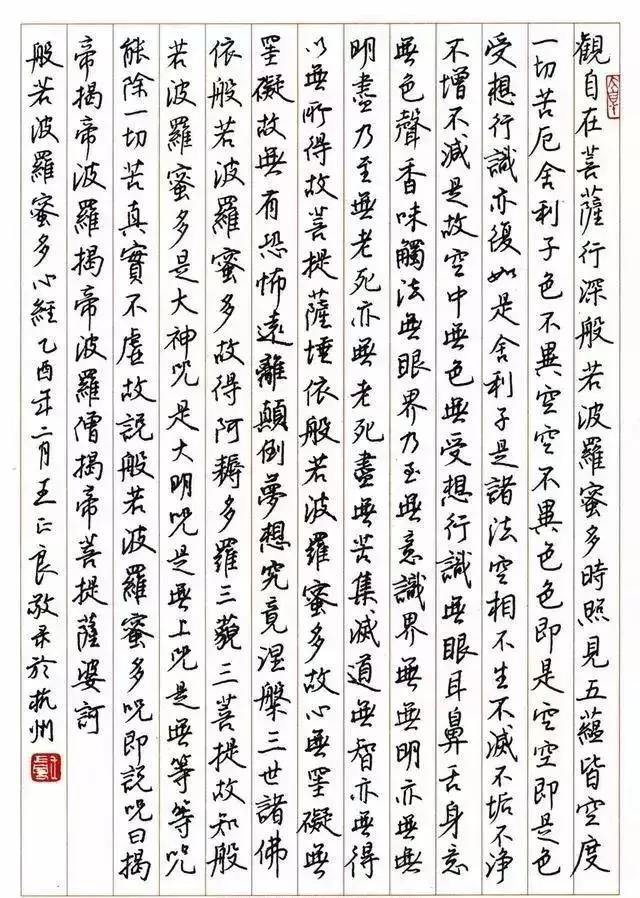 觀自在菩薩行深般若波羅蜜多時照見五蘊皆空度
一切苦厄舍利子色不異空空不異色色即是空空即是色
受想行識亦復如是舍利子是諸法空相不生不滅不垢不净
不增不減是故空中無色無受想行識無眼耳鼻舌身意
無色聲香味觸法無眼界乃至無意識界無無明亦無無
明盡乃至無老死亦無老死盡無苦集滅道無智亦無得
以無所得故菩提薩埵依般若波羅蜜多故心無罣礙無
罣礙故無有恐怖遠離顛倒夢想究竟涅槃三世諸佛
依般若波羅蜜多故得阿耨多羅三藐三菩提故知般
若波羅蜜多是大神咒是大明咒是無上咒是無等等咒
能除一切苦真實不虛故說般若波羅蜜多咒即說咒曰揭
帝揭帝波羅揭帝波羅僧揭帝菩提薩婆訶
般若波羅蜜多心經乙酉年二月王仁良敬录於杭州